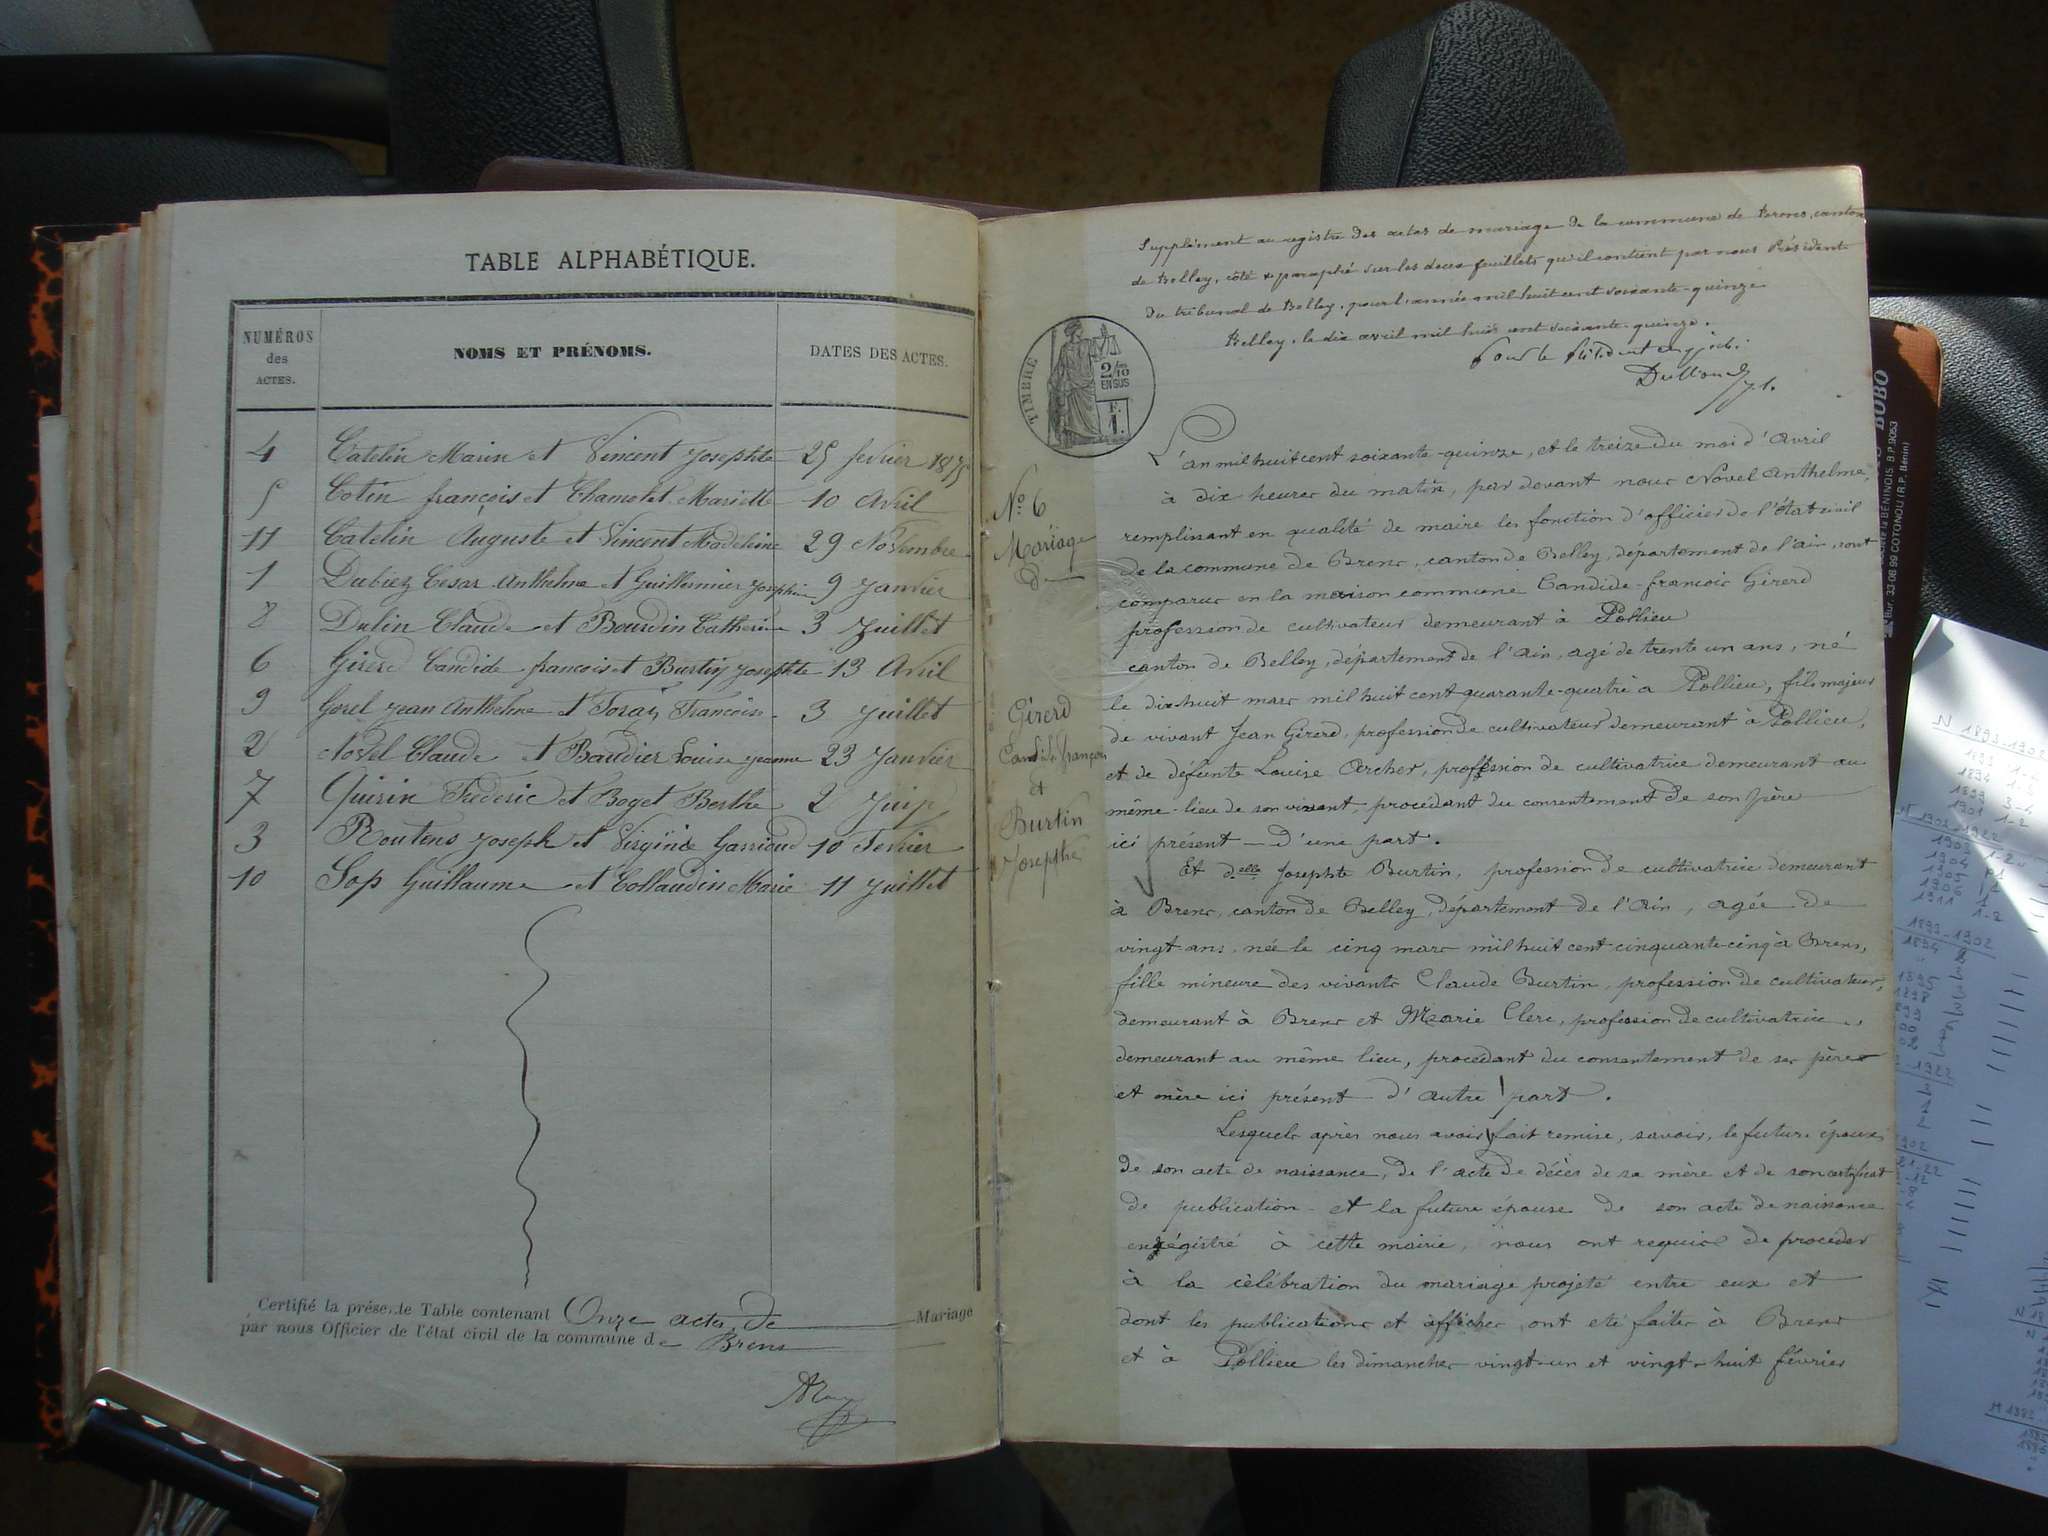 TABLE ALPHABÉTIQUE.
NUMÉROS des ACTES. NOMS ET PRÉNOMS. DATES DES ACTES.
4 Catelin Marin et Vincent Josephte 25 fevrier 1875
5 Cotin françois et Chamelet Mariette 10 Avril
11 Catelin Auguste et Vincent Madeleine 29 Novembre
1 Dubiez Cesar Anthelme et Guillermier Josephine 9 Janvier
8 Dulin Claude et Bourdin Catherine 3 Juillet
6 Girerd Candide françois et Burtin Josephte 13 Avril
9 Gorel Jean Anthelme et Françoise 3 Juillet
2 Novel Claude et Baudier Louise Jeanne 23 Janvier
7 Quirin Frederic et Boget Berthe 2 Juin
3 Routens Joseph et Virginie 10 Fevrier
10 Sap Guillaume et Collaudin Marie 11 Juillet
Certifié la présente Table contenant Onze actes de Mariage
par nous Officier de l'état civil de la commune de Brens
Supplément au registre des actes de mariage de la commune de Brens, canton
de Belley, côté & paraphé sur les deux feuillets qu'il contient par nous Président
du tribunal de Belley, pour l'année mil huit cent soixante-quinze
Belley, le dix avril mil huit cent soixante-quinze.
Pour le Président
TIMBRE
2/10
EN SUS
F.
1.
No 6
Mariage
de
Girerd
Candide françois
et
Burtin
Josephte
L'an mil huit cent soixante-quinze, et le treize du moi d'Avril
à dix heures du matin, par devant nous Novel Anthelme,
remplissant en qualité de maire les fonction d'officier de l'état civil
de la commune de Brens, canton de Belley, département de l'ain, sont
comparus en la maison commune Candide-françois Girerd
profession de cultivateur demeurant à Pollieu
canton de Belley, département de l'Ain, agé de trente un ans, né
le dix-huit mars mil huit cent quarante-quatre a Pollieu, fils majeur
de vivant Jean Girerd, profession de cultivateur demeurant à Pollieu,
et de défunte Louise Archer, proffession de cultivatrice demeurant au
même lieu de son vivant, procédant du consentement de son père
ici présent — D'une part.
Et delle Josephte Burtin, profession de cultivatrice demeurant
à Brens, canton de Belley, département de l'Ain, agée de
vingt ans, née le cinq mars mil huit cent cinquante-cinq à Brens,
fille mineure des vivants Claude Burtin, profession de cultivateur,
demeurant à Brens et Marie Clerc, profession de cultivatrice,
demeurant au même lieu, procédant du consentement de ses père
et mère ici présent d'autre part.
Lesquels après nous avoir fait remise, savoir, le futur époux
de son acte de naissance, de l'acte de décès de sa mère et de son certificat
de publication - et la future épouse de son acte de naissance
enrégistré à cette mairie, nous ont requis de procéder
à la célébration du mariage projeté entre eux et
dont les publications et affiches ont été faites à Brens
et à Pollieu les dimanches vingt-un et vingt-huit février
BOBO
B.P. 9053
33-08 99 COTONOU (R.P. Bénin)
1893-1902
1894
1902-1922
1903
1904
1911 1-2
1893-1902
1894